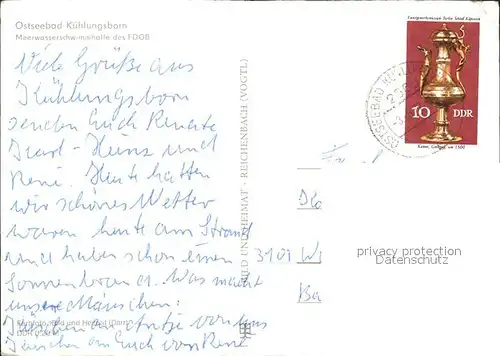 Ostseebad Kühlungsborn
Meerwasserschwimmhalle des FDGB
Viele Grüße aus
Kühlungsborn
senden Euch Renate
Karl-Heinz und
René. Heute hatten
wir schönes Wetter
waren heute am Strand
und haben schon einen
Sonnenbrand. Was macht
unser Mäuschen.
Küsschen an Antje von uns
Küsschen an Euch von René
BILD UND HEIMAT · REICHENBACH (VOGTL)
Kunstgewerbemuseum Berlin Schloß Köpenick
10 DDR
Kanne, Gold, um 1500
OSTSEEBAD
3101
privacy protection
Datenschutz